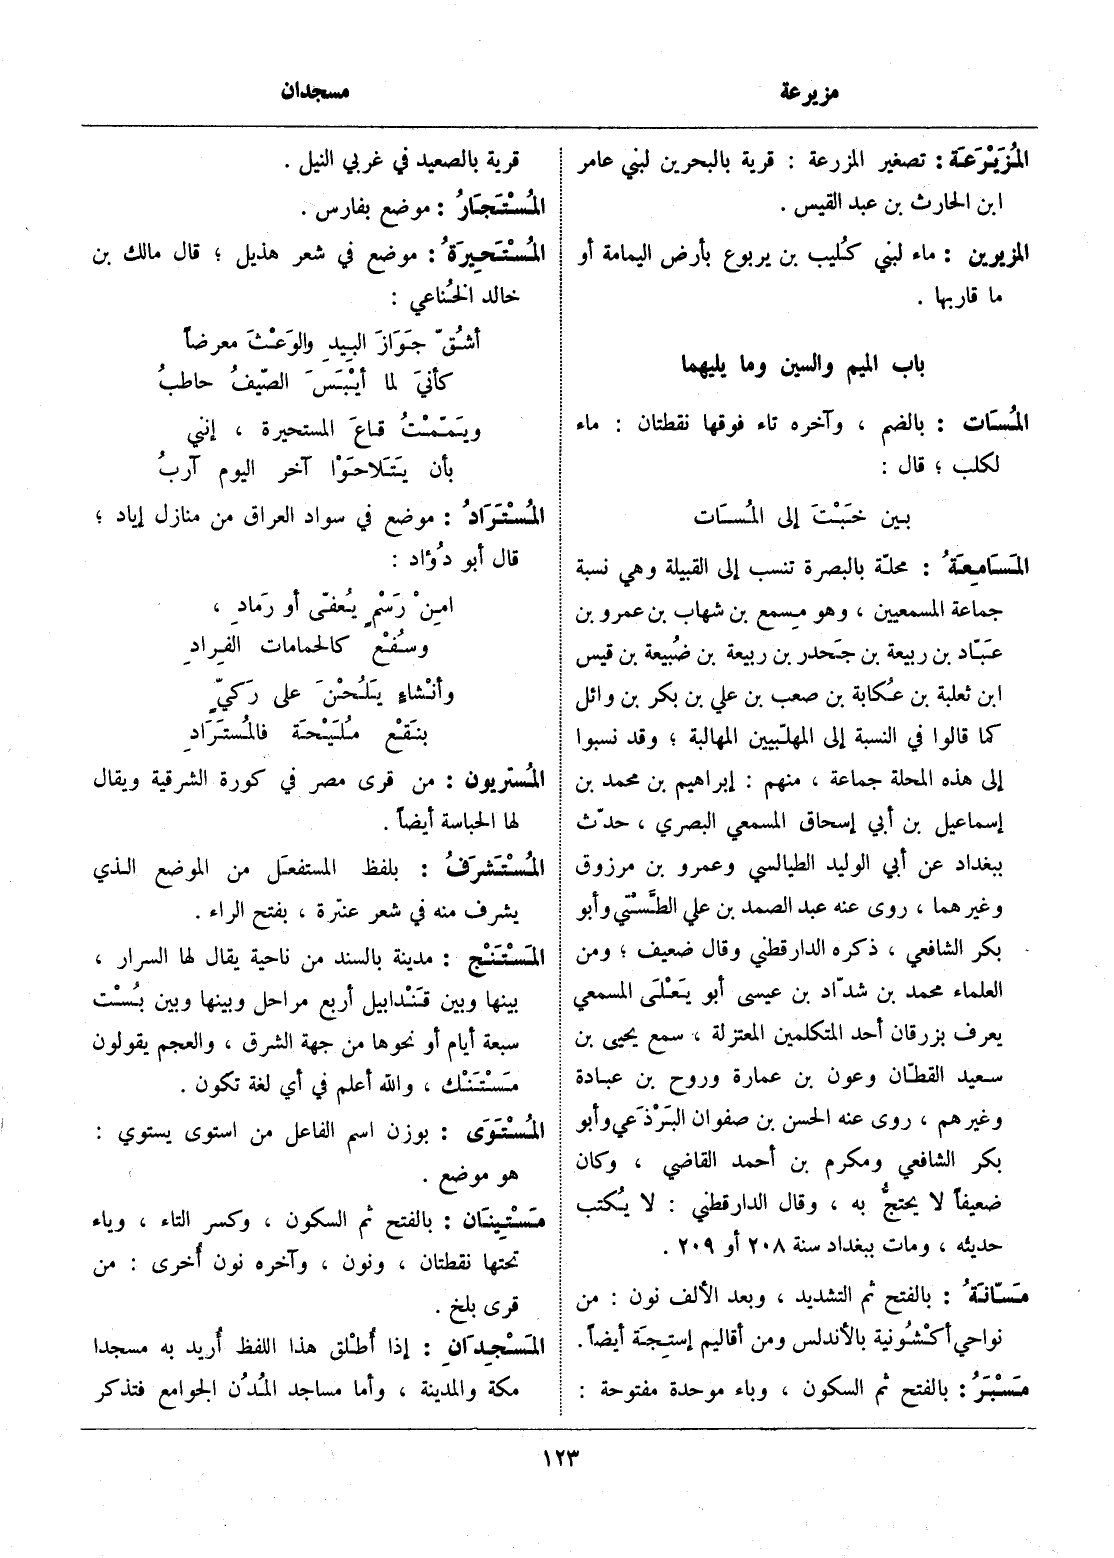 مزيرعة
مسجدان
المُزَيْرَعَة : تصغير المزرعة : قرية بالبحرين لبني عامر
ابن الحارث بن عبد القيس .
المزيرين : ماء لبني كُليب بن يربوع بأرض اليمامة أو
ما قاربها .
باب الميم والسين وما يليهما
المُسَات : بالضم ، وآخره تاء فوقها نقطتان : ماء
لكلب ؛ قال :
بين خَبْتَ إلى المُسَات
المَسَامِعَةُ : محلّة بالبصرة تنسب إلى القبيلة وهي نسبة
جماعة المسمعيين ، وهو مِسمع بن شهاب بن عمرو بن
عَبّاد بن ربيعة بن جَحدر بن ربيعة بن ضُبيعة بن قيس
ابن ثعلبة بن عُكابة بن صعب بن علي بن بكر بن وائل
كما قالوا في النسبة إلى المهلّبيين المهالبة ؛ وقد نسبوا
إلى هذه المحلة جماعة ، منهم : إبراهيم بن محمد بن
إسماعيل بن أبي إسحاق المسمعي البصري ، حدّث
ببغداد عن أبي الوليد الطيالسي وعمرو بن مرزوق
وغيرهما ، روى عنه عبد الصمد بن علي الطَّسْتي وأبو
بكر الشافعي ، ذكره الدارقطني وقال ضعيف ؛ ومن
العلماء محمد بن شدّاد بن عيسى أبو يَعْلَى المسمعي
يعرف بزرقان أحد المتكلمين المعتزلة ، سمع يحيى بن
سعيد القطّان وعون بن عمارة وروح بن عبادة
وغيرهم ، روى عنه الحسن بن صفوان البَرْذَعي وأبو
بكر الشافعي ومكرم بن أحمد القاضي ، وكان
ضعيفاً لا يحتجُّ به ، وقال الدارقطني : لا يُكتب
حديثه ، ومات ببغداد سنة ٢٠٨ أو ٢٠٩ .
مَسّانَةُ : بالفتح ثم التشديد ، وبعد الألف نون : من
نواحي أكْشُونية بالأندلس ومن أقاليم إستِجَة أيضاً .
مَسْبَرُ : بالفتح ثم السكون ، وباء موحدة مفتوحة :
قرية بالصعيد في غربي النيل .
المُسْتَجَارُ : موضع بفارس .
المُسْتَحيرَةُ : موضع في شعر هذيل ؛ قال مالك بن
خالد الخُناعي :
أشُقّ جَوَازَ البِيدِ والوَعْثَ معرضاً
كأنيَ لما أيْبَسَ الصّيفُ حاطبُ
ويَمّمْتُ قاعَ المستحيرة ، إنني
بأن يَتَلاحَوْا آخر اليوم آربُ
المُسْتَرَادُ : موضع في سواد العراق من منازل إياد ؛
قال أبو دُؤاد :
امِنْ رَسْمٍ يُعفّى أو رَمادِ ،
وسُفْعٍ كالحمامات الفِرادِ
وأنْشاءٍ يَلُحْنَ على رَكيٍّ
بنَقْعِ مُلَيْحَة فالمُستَرَادِ
المُستريون : من قرى مصر في كورة الشرقية ويقال
لها الحباسة أيضاً .
المُسْتَشرَفُ : بلفظ المستفعَل من الموضع الذي
يشرف منه في شعر عنترة ، بفتح الراء .
المَسْتَنْج : مدينة بالسند من ناحية يقال لها السرار ،
بينها وبين قَنْدابيل أربع مراحل وبينها وبين بُسْت
سبعة أيام أو نحوها من جهة الشرق ، والعجم يقولون
مَسْتَنْك ، والله أعلم في أي لغة تكون .
المُسْتَوَى : بوزن اسم الفاعل من استوى يستوي :
هو موضع .
مَسْتِينَان : بالفتح ثم السكون ، وكسر التاء ، وياء
تحتها نقطتان ، ونون ، وآخره نون أُخرى : من
قرى بلخ .
المَسْجِدَانِ : إذا أُطْلق هذا اللفظ أُريد به مسجدا
مكة والمدينة ، وأما مساجد المُدُن الجوامع فتذكر
١٢٣